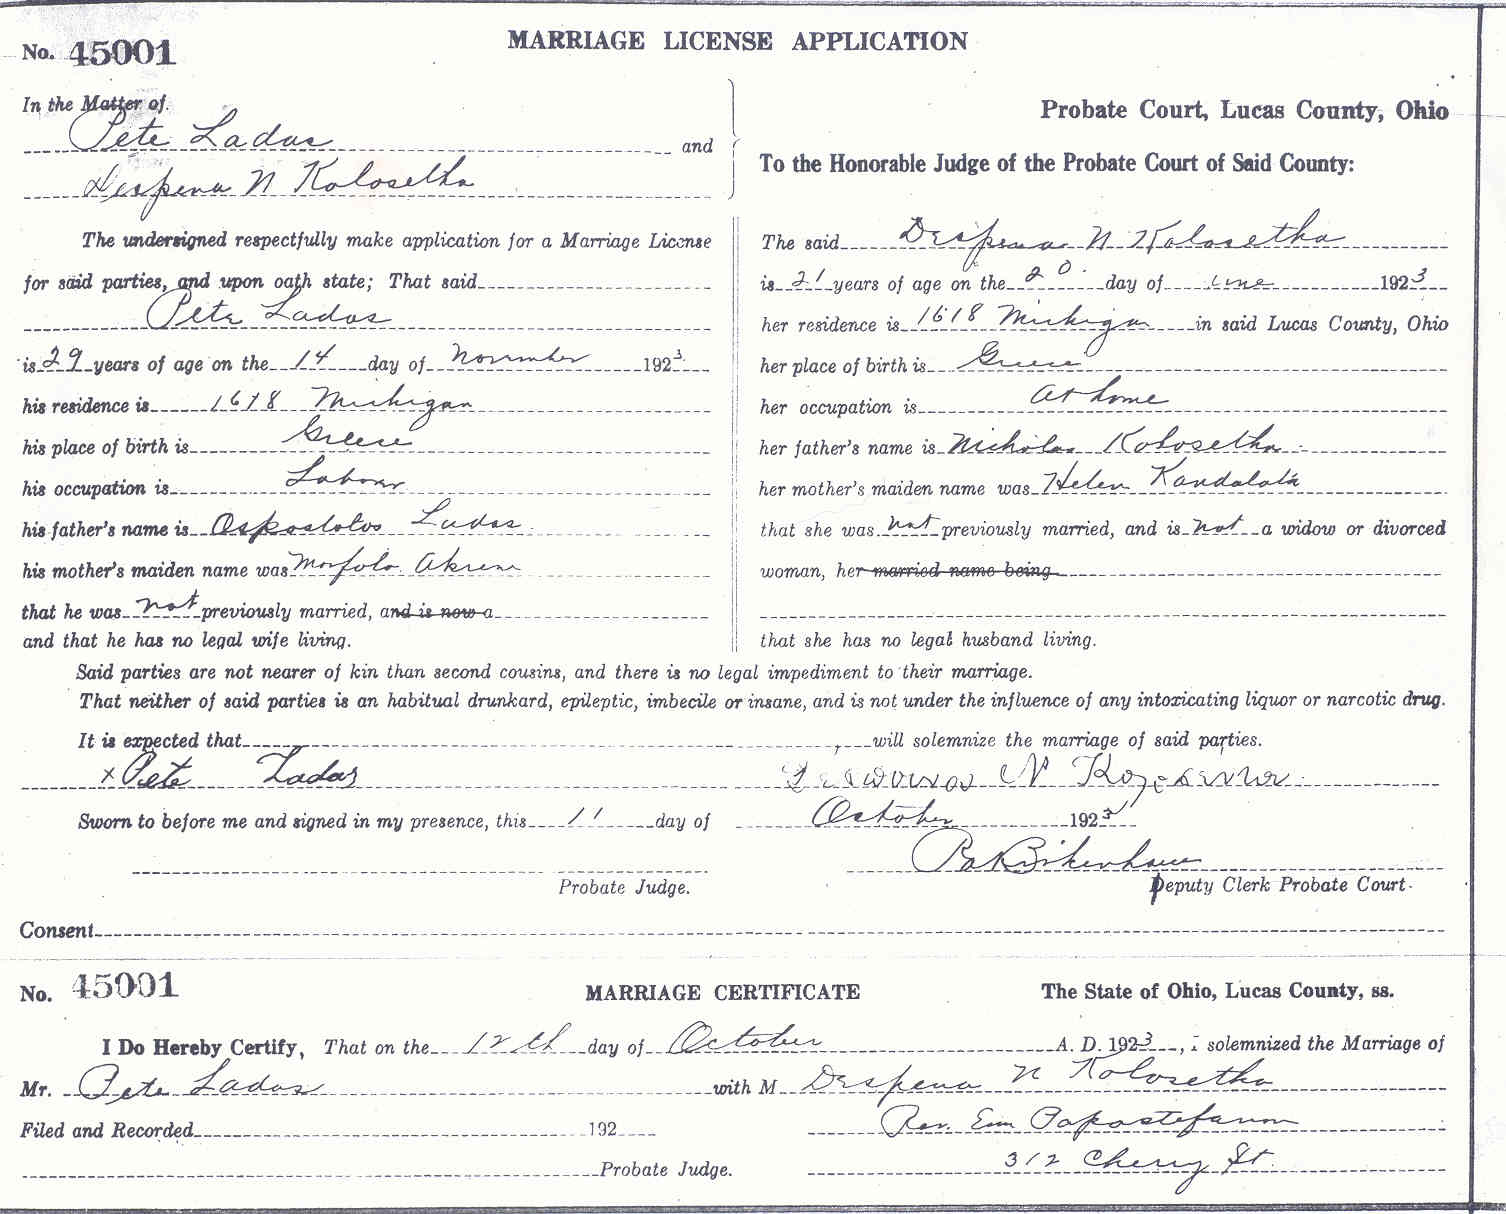 No. 45001
MARRIAGE LICENSE APPLICATION
In the Matter of
Pete Ladas and
Despena N Kolosetha
Probate Court, Lucas County, Ohio
To the Honorable Judge of the Probate Court of Said County:
The undersigned respectfully make application for a Marriage License
for said parties, and upon oath state; That said
Pete Ladas
is 29 years of age on the 14 day of November 1923
his residence is 1618 Michigan
his place of birth is Greece
his occupation is Labour
his father's name is Ospostolos Ladas
his mother's maiden name was Morfolo
that he was not previously married, and is now a
and that he has no legal wife living.
The said Despena N Kolosetha
is 21 years of age on the 20 day of June 1923
her residence is 1618 Michigan in said Lucas County, Ohio
her place of birth is Greece
her occupation is At home
her father's name is Nicholas Kolosetha
her mother's maiden name was Helen Kandalata
that she was not previously married, and is not a widow or divorced
woman, her married name being
that she has no legal husband living.
Said parties are not nearer of kin than second cousins, and there is no legal impediment to their marriage.
That neither of said parties is an habitual drunkard, epileptic, imbecile or insane, and is not under the influence of any intoxicating liquor or narcotic drug.
It is expected that will solemnize the marriage of said parties.
x Pete Ladas
Sworn to before me and signed in my presence, this 11 day of October 1923
Probate Judge. Deputy Clerk Probate Court.
Consent
No. 45001 MARRIAGE CERTIFICATE The State of Ohio, Lucas County, ss.
I Do Hereby Certify, That on the 12th day of October A. D. 1923, I solemnized the Marriage of
Mr. Pete Ladas with M Despena N Kolosetha
Filed and Recorded 192 Rev. Em Papastefanon
Probate Judge. 312 Cherry St.